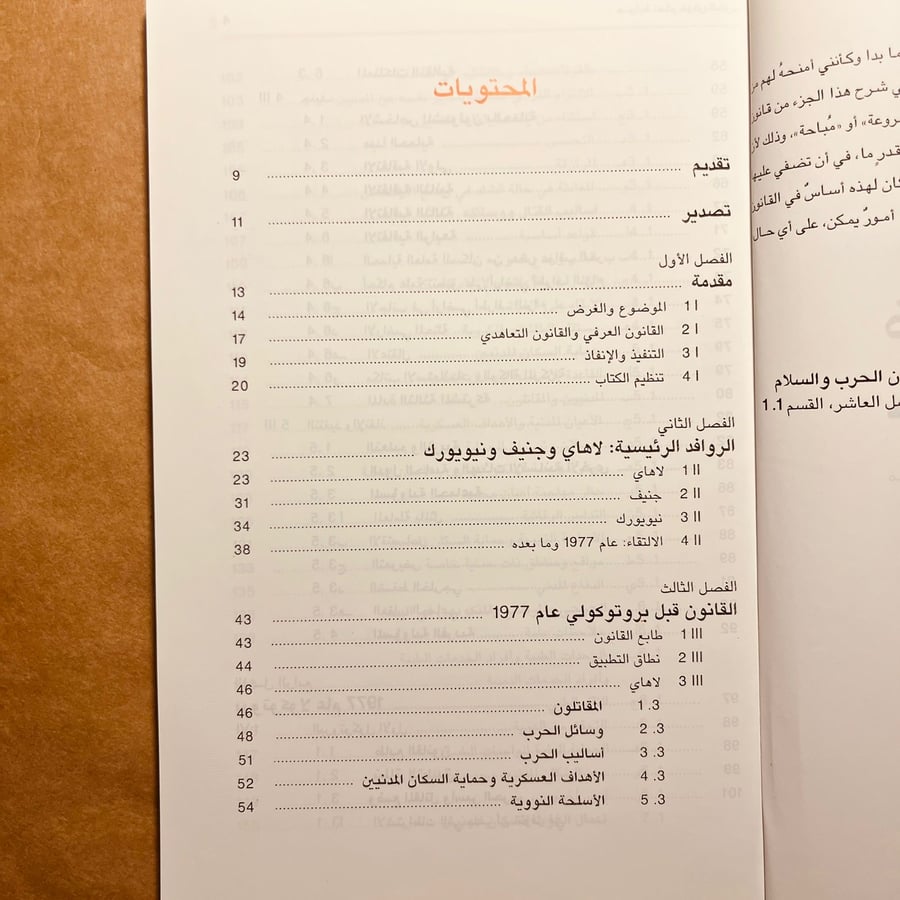 المحتويات
تقديم ........ 9
تصدير ........ 11
الفصل الأول
مقدمة ........ 13
I 1 الموضوع والغرض ........ 14
I 2 القانون العرفي والقانون التعاهدي ........ 17
I 3 التنفيذ والإنفاذ ........ 19
I 4 تنظيم الكتاب ........ 20
الفصل الثاني
الروافد الرئيسية: لاهاي وجنيف ونيويورك ........ 23
II 1 لاهاي ........ 23
II 2 جنيف ........ 31
II 3 نيويورك ........ 34
II 4 الالتقاء: عام 1977 وما بعده ........ 38
الفصل الثالث
القانون قبل بروتوكولي عام 1977 ........ 43
III 1 طابع القانون ........ 43
III 2 نطاق التطبيق ........ 44
III 3 لاهاي ........ 46
3. 1 المقاتلون ........ 46
3. 2 وسائل الحرب ........ 48
3. 3 أساليب الحرب ........ 51
3. 4 الأهداف العسكرية وحماية السكان المدنيين ........ 52
3. 5 الأسلحة النووية ........ 54
ما بدا وكأنني أمنحهُ لهم
ي شرح هذا الجزء من قانون
روعة» أو «مُباحة»، وذلك لأن
قدرٍ ما، في أن تضفي عليها
كان لهذه أساسٌ في القانون
أمورٌ يمكن، على أي حال
ن الحرب والسلام
ل العاشر، القسم 1.1